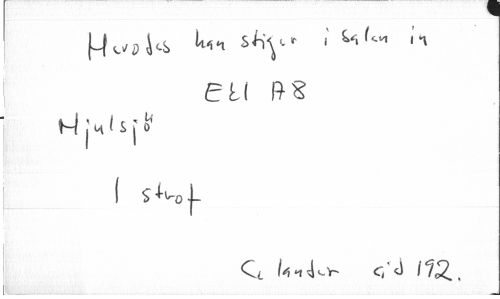 Herodes han stiger i salen in
EEl A8
Hjulsjö
1 strof
Celander sid 192.